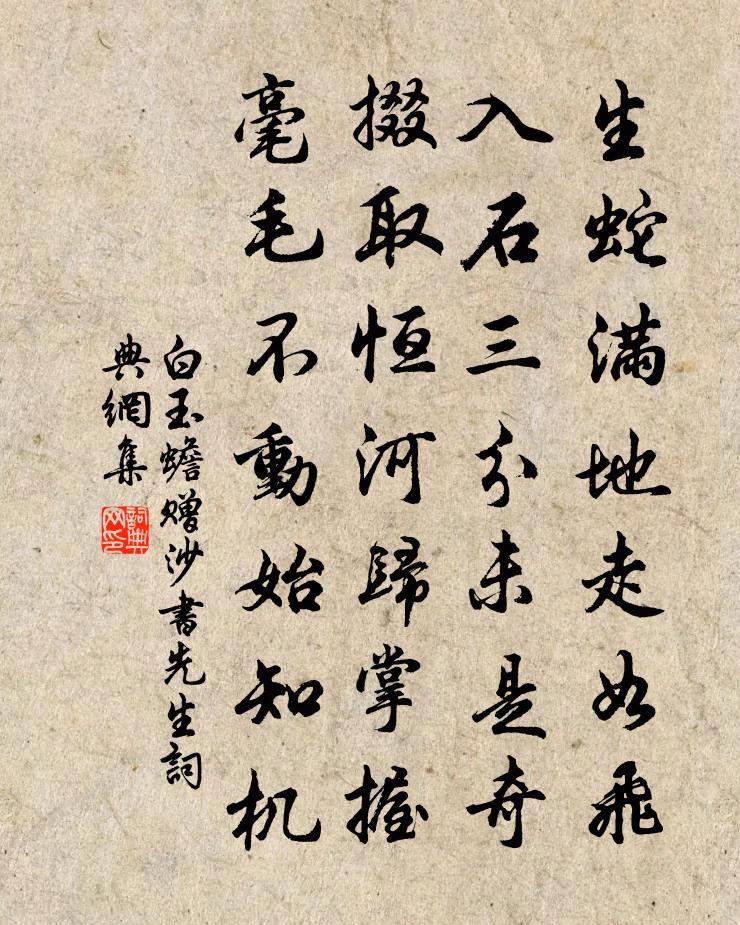 生蛇滿地走如飛
入石三分未是奇
掇取恒河歸掌握
毫毛不動始知机
白玉蟾贈沙書先生詞
典網集
詞典
网印